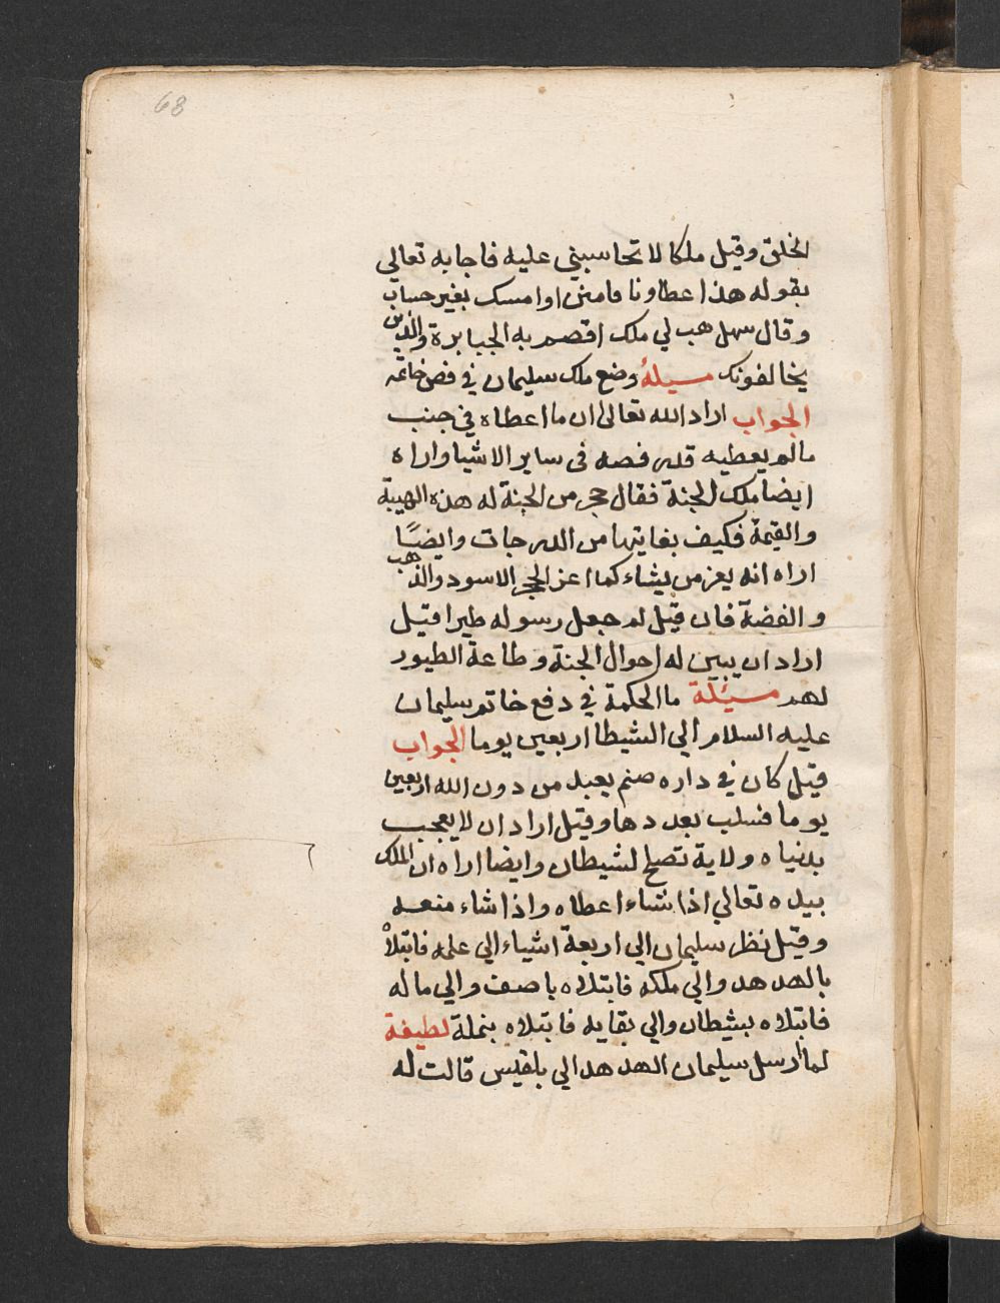 68
الخلق وقيل ملكا لا تحاسبني عليه فاجابه تعالي
بقوله هذا عطاونا فامنن اوامسك بغير حساب
وقال سهل هب لي ملك اقصم به الجبابرة والذين
يخالفونك مسيلة وضع ملك سليمان في فص خاتمه
الجواب اراد الله تعالى ان ما اعطاه في جنب
مالم يعطيه قدر فصه فى ساير الاشيا واراه
ايضا ملك الجنة فقال حجر من الجنة له هذه الهيبة
والقيمة فكيف بغايتها من الدرجات وايضًا
اراه انه يعز من يشاء كما اعز الحجر الاسود والذهب
والفضة فان قيل لم جعل رسوله طيرا قيل
اراد ان يبين له احوال الجنة وطاعة الطيور
لهم مسيئلة ما الحكمة في دفع خاتم سليمان
عليه السلام الي الشيطا اربعين يوما الجواب
قيل كان في داره صنم يعبد من دون الله اربعين
يوما فسلب بعددها وقيل اراد ان لا يعجب
بدنياه ولاية تصلح لشيطان وايضا اراه ان الملك
بيده تعالي اذا شاء اعطاه واذا شاء منعه
وقيل نظر سليمان الي اربعة اشياء الي علمه فابتلاه
بالهدهد والي ملكه فابتلاه باصف والي ماله
فابتلاه بشيطان والي بقايه فابتلاه بنملة لطيفة
لما ارسل سيلمان الهدهد الي بلقيس قالت له